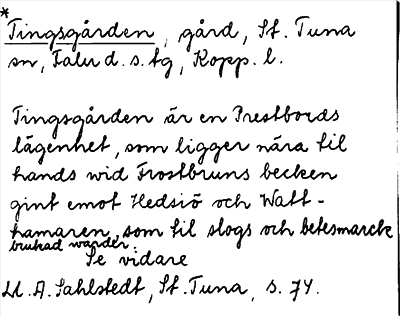 *
Tingsgården, gård, St. Tuna
sn, Falu d. s. tg, Kopp. l.
Tingsgården är en Prestbords
lägenhet, som ligger nära til
hands wid Frostbruns becken
gint emot Hedsiö och Watt-
hamaren, som til slogs och betesmarck
brukad warder.
Se vidare
M. A. Sahlstedt, St. Tuna, s. 74.